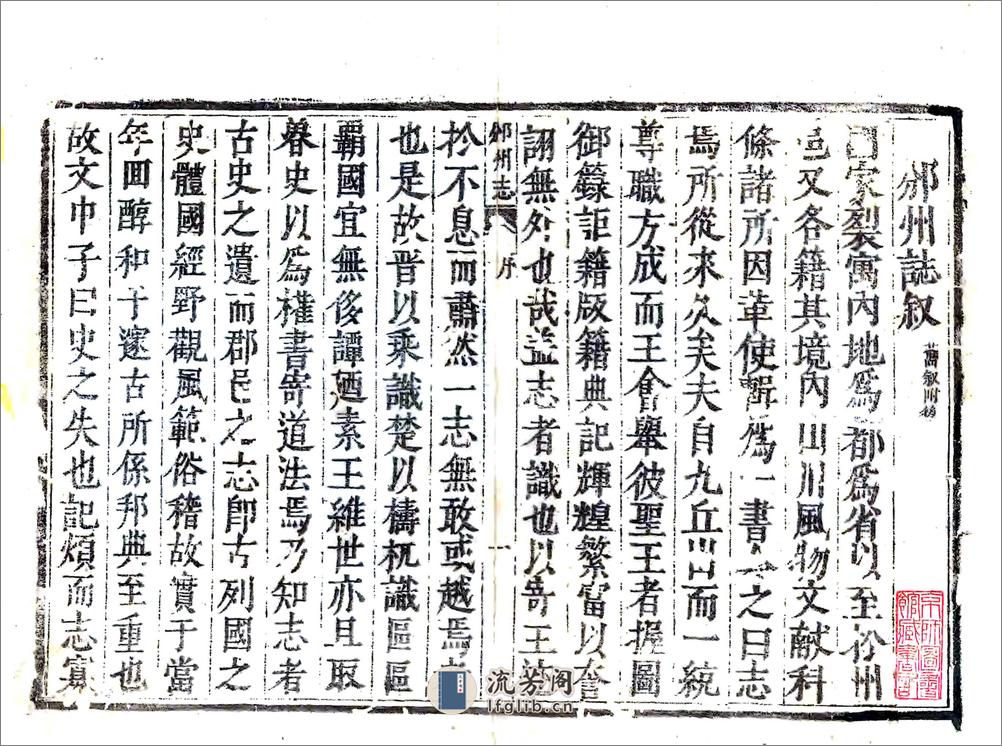 邠州誌叙 舊叙附
國家裂寓內地爲都爲省以至於州
邑又各籍其境內山川風物文献科
條諸所因革使輯爲一書命之曰志
焉所從來久矣夫自九丘出而一統
尊職方成而王會舉彼聖王者握圖
御籙詎籍版籍典記輝煌繁富以奢
詡無外也哉葢志者識也以寄王法
邠州志 序 一
於不息而肅然一志無敢或越焉者
也是故晋以乘識楚以檮杌識區區
覇國宜無侈譚廼素王維世亦且取
春史以爲權書寄道法焉乃知志者
古史之遺而郡邑之志即古列國之
史體國經野觀風範俗稽故實于當
年回醇和于邃古所係邦典至重也
故文中子曰史之失也記煩而志寡
京師圖書館藏書記
流芳阁
lfglib.cn